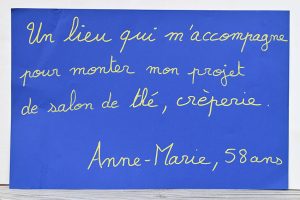 Un lieu qui m'accompagne
pour monter mon projet
de salon de thé, crèperie.
Anne-Marie, 58 ans